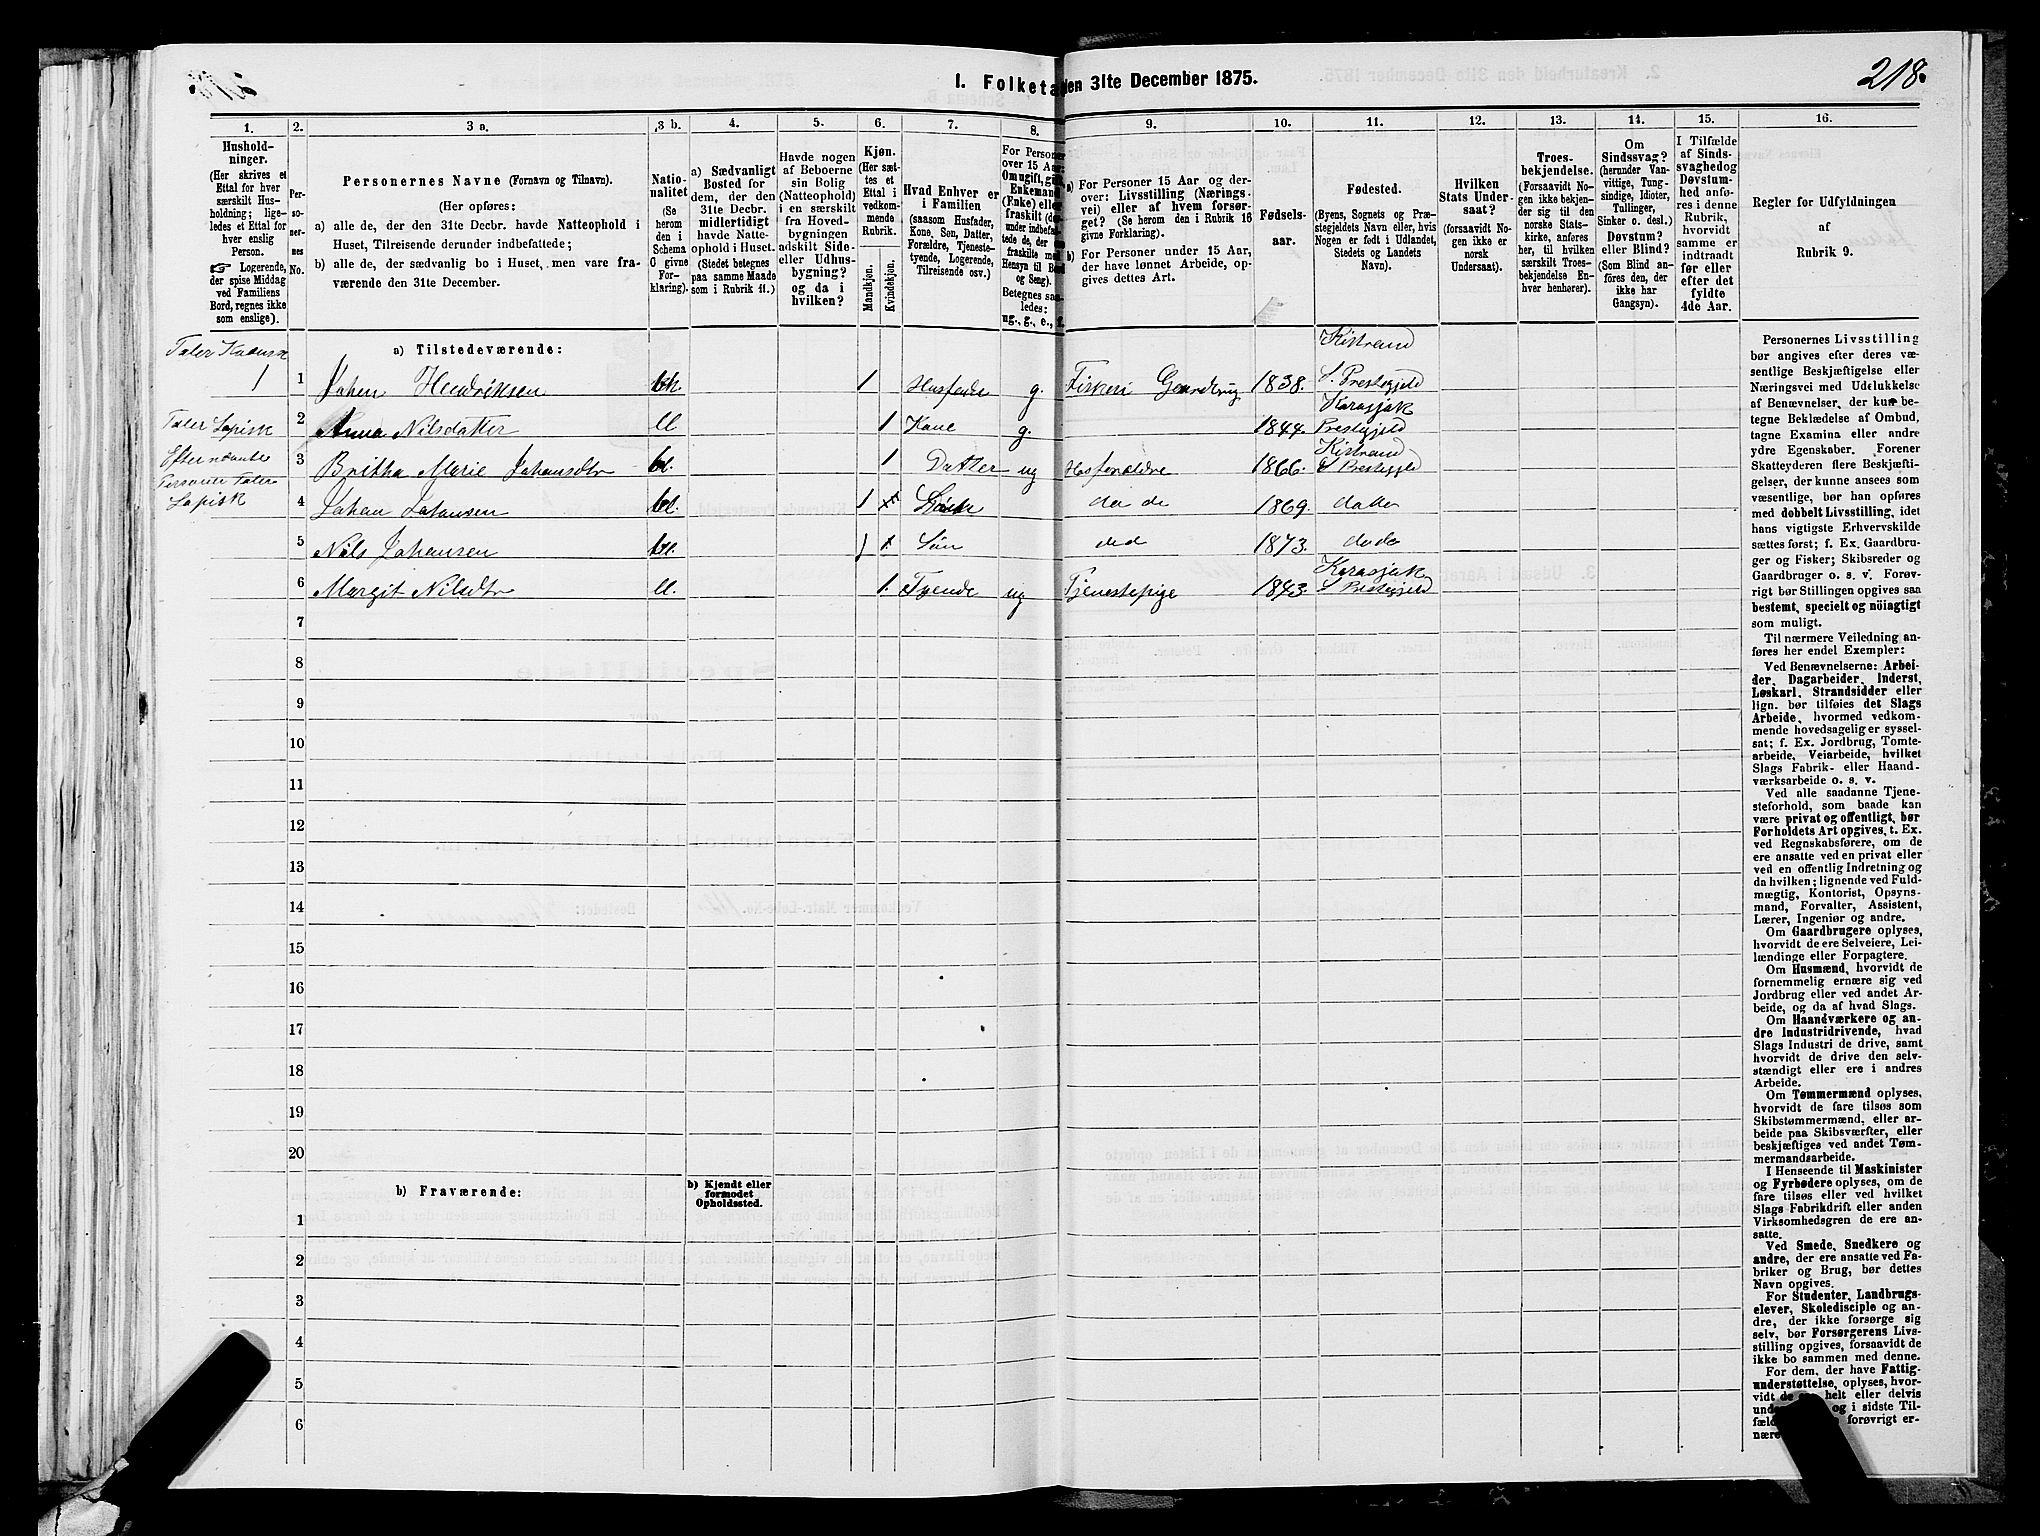 I. Folketæ
den 31te December 1875.
218.
1.
2.
3 a.
3 b.
4.
5.
6.
7.
8.
9.
10.
11.
12.
13.
14.
15.
16.
Hushold-
ninger.
(Her skrives et
Ettal for hver
særskilt Hus-
holdning; lige-
ledes et Ettal for
hver enslig
Person.
☞ Logerende,
der spise Middag
ved Familiens
Bord, regnes ikke
som enslige).
Per-
so-
ner-
nes
No.
Personernes Navne (Fornavn og Tilnavn).
(Her opføres:
a) alle de, der den 31te Decbr. havde Natteophold i
Huset, Tilreisende derunder indbefattede;
b) alle de, der sædvanlig bo i Huset, men vare fra-
værende den 31te December.
Natio-
nalitet
(Se
herom
den i
Schema
C givne
For-
klaring).
a) Sædvanligt
Bosted for
dem, der den
31te Decbr.
midlertidigt
havde Natte-
ophold i Huset.
(Stedet betegnes
paa samme Maade
som i Rubrik 11.)
Havde nogen
af Beboerne
sin Bolig
(Natteophold)
i en særskilt
fra Hoved-
bygningen
adskilt Side-
eller Udhus-
bygning?
og da i
hvilken?
Kjøn.
(Her sæt-
tes et
Ettal i
vedkom-
mende
Rubrik.
Mandkjøn.
Kvindekjøn.
Hvad Enhver er
i Familien
(saasom Husfader,
Kone, Søn, Datter,
Forældre, Tjeneste-
tyende, Logerende,
Tilreisende osv.)
For Personer
over 15 Aar:
Om ugift, gift,
Enkemand
(Enke) eller
fraskilt (der-
under indbefat-
tede de, der ere
fraskilte med
Hensyn til Bord
og Seng).
Betegnes saa-
ledes:
ug., g., e., f.
a) For Personer 15 Aar og der-
over: Livsstilling (Nærings-
vei) eller af hvem forsør-
get? (Se herom den i Rubrik 16
givne Forklaring).
b) For Personer under 15 Aar,
der have lønnet Arbeide, op-
gives dettes Art.
Fødsels-
aar.
Fødested.
(Byens, Sognets og Præ-
stegjeldets Navn eller, hvis
Nogen er født i Udlandet,
Stedets og Landets
Navn).
Hvilken
Stats Under-
saat?
(forsaavidt No-
gen ikke er
norsk
Undersaat).
Troes-
bekjendelse.
(Forsaavidt No-
gen ikke bekjen-
der sig til den
norske Stats-
kirke, anføres
her, til hvilken
særskilt Troes-
bekjendelse En-
hver henhører).
Om
Sindssvag?
(herunder Van-
vittige, Tung-
sindige, Idioter,
Tullinger,
Sinker o. desl.)
Døvstum?
eller Blind?
(Som Blind an-
føres den, der
ikke har
Gangsyn).
I Tilfælde
af Sinds-
svaghed og
Døvstum-
hed anfø-
res i denne
Rubrik,
hvorvidt
samme er
indtraadt
før eller
efter det
fyldte
4de Aar.
Regler for Udfyldningen
af
Rubrik 9.
a) Tilstedeværende:
1 Johan Hendriksen 1 Husfader g. Fiskeri Gaardbrug 1838. Kistrand S. Prestegjeld
2 Anna Nilsdatter ll 1 Kone g. 1844. Karasjok Prestegjeld
3 Britha Marie Johansdtr bl. 1 Datter ug Husforældre 1866. Kistrand S Prestegjeld
4 Johan Johansen bl. 1 do do 1869. do do
5 Nils Johansen bl. 1 Søn do do 1873. do do
6 Margit Nilsdtr ll. 1. Tyende ug Tjenestepige 1843. Karasjok S Prestegjeld
7
8
9
10
11
12
13
14
15
16
17
18
19
20
b) Fraværende:
b) Kjendt eller
formodet
Opholdssted.
1
2
3
4
5
6
Personernes Livsstilling
bør angives efter deres væ-
sentlige Beskjæftigelse eller
Næringsvei med Udelukkelse
af Benævnelser, der kun be-
tegne Beklædelse af Ombud,
tagne Examina eller andre
ydre Egenskaber. Forener
Skatteyderen flere Beskjæfti-
gelser, der kunne ansees som
væsentlige, bør han opføres
med dobbelt Livsstilling, idet
hans vigtigste Erhvervskilde
sættes først; f. Ex. Gaardbru-
ger og Fisker; Skibsreder og
Gaardbruger o. s. v. Forøv-
rigt bør Stillingen opgives saa
bestemt, specielt og nöiagtigt
som muligt.
Til nærmere Veiledning an-
føres her endel Exempler:
Ved Benævnelserne: Arbei-
der, Dagarbeider, Inderst,
Løskarl, Strandsidder eller
lign. bør tilføies det Slags
Arbeide, hvormed vedkom-
mende hovedsagelig er syssel-
sat; f. Ex. Jordbrug, Tomte-
arbeide, Veiarbeide, hvilket
Slags Fabrik- eller Haand-
værksarbeide o. s. v.
Ved alle saadanne Tjene-
steforhold, som baade kan
være privat og offentligt, bør
Forholdets Art opgives, t. Ex.
ved Regnskabsførere, om de
ere ansatte ved en privat eller
ved en offentlig Indretning og
da hvilken; lignende ved Fuld-
mægtig, Kontorist, Opsyns-
mand, Forvalter, Assistent,
Lærer, Ingeniør og andre.
Om Gaardbrugere oplyses,
hvorvidt de ere Selveiere, Lei-
lændinge eller Forpagtere.
Om Husmænd, hvorvidt de
fornemmelig ernære sig ved
Jordbrug eller ved andet Ar-
beide, og da af hvad Slags.
Om Haandværkere og an-
dre Industridrivende, hvad
Slags Industri de drive, samt
hvorvidt de drive den selv-
stændigt eller ere i andres
Arbeide.
Om Tømmermænd oplyses,
hvorvidt de fare tilsøs som
Skibstømmermænd, eller ar-
beide paa Skibsværfter, eller
beskjæftiges ved andet Tøm-
mermandsarbeide.
I Henseende til Maskinister
og Fyrbødere oplyses, om de
fare tilsøs eller ved hvilket
Slags Fabrikdrift eller anden
Virksomhedsgren de ere an-
satte.
Ved Smede, Snedkere og
andre, der ere ansatte ved Fa-
briker og Brug, bør dettes
Navn opgives.
For Studenter, Landbrugs-
elever, Skoledisciple og an-
dre, der ikke forsørge sig
selv, bør Forsørgerens Livs-
stilling opgives, forsaavidt de
ikke bo sammen med denne.
For dem, der have Fattig-
understøttelse, oplyses, hvor-
vidt de helt eller delvis
og i sidste Til-
forøvrigt er-
nære